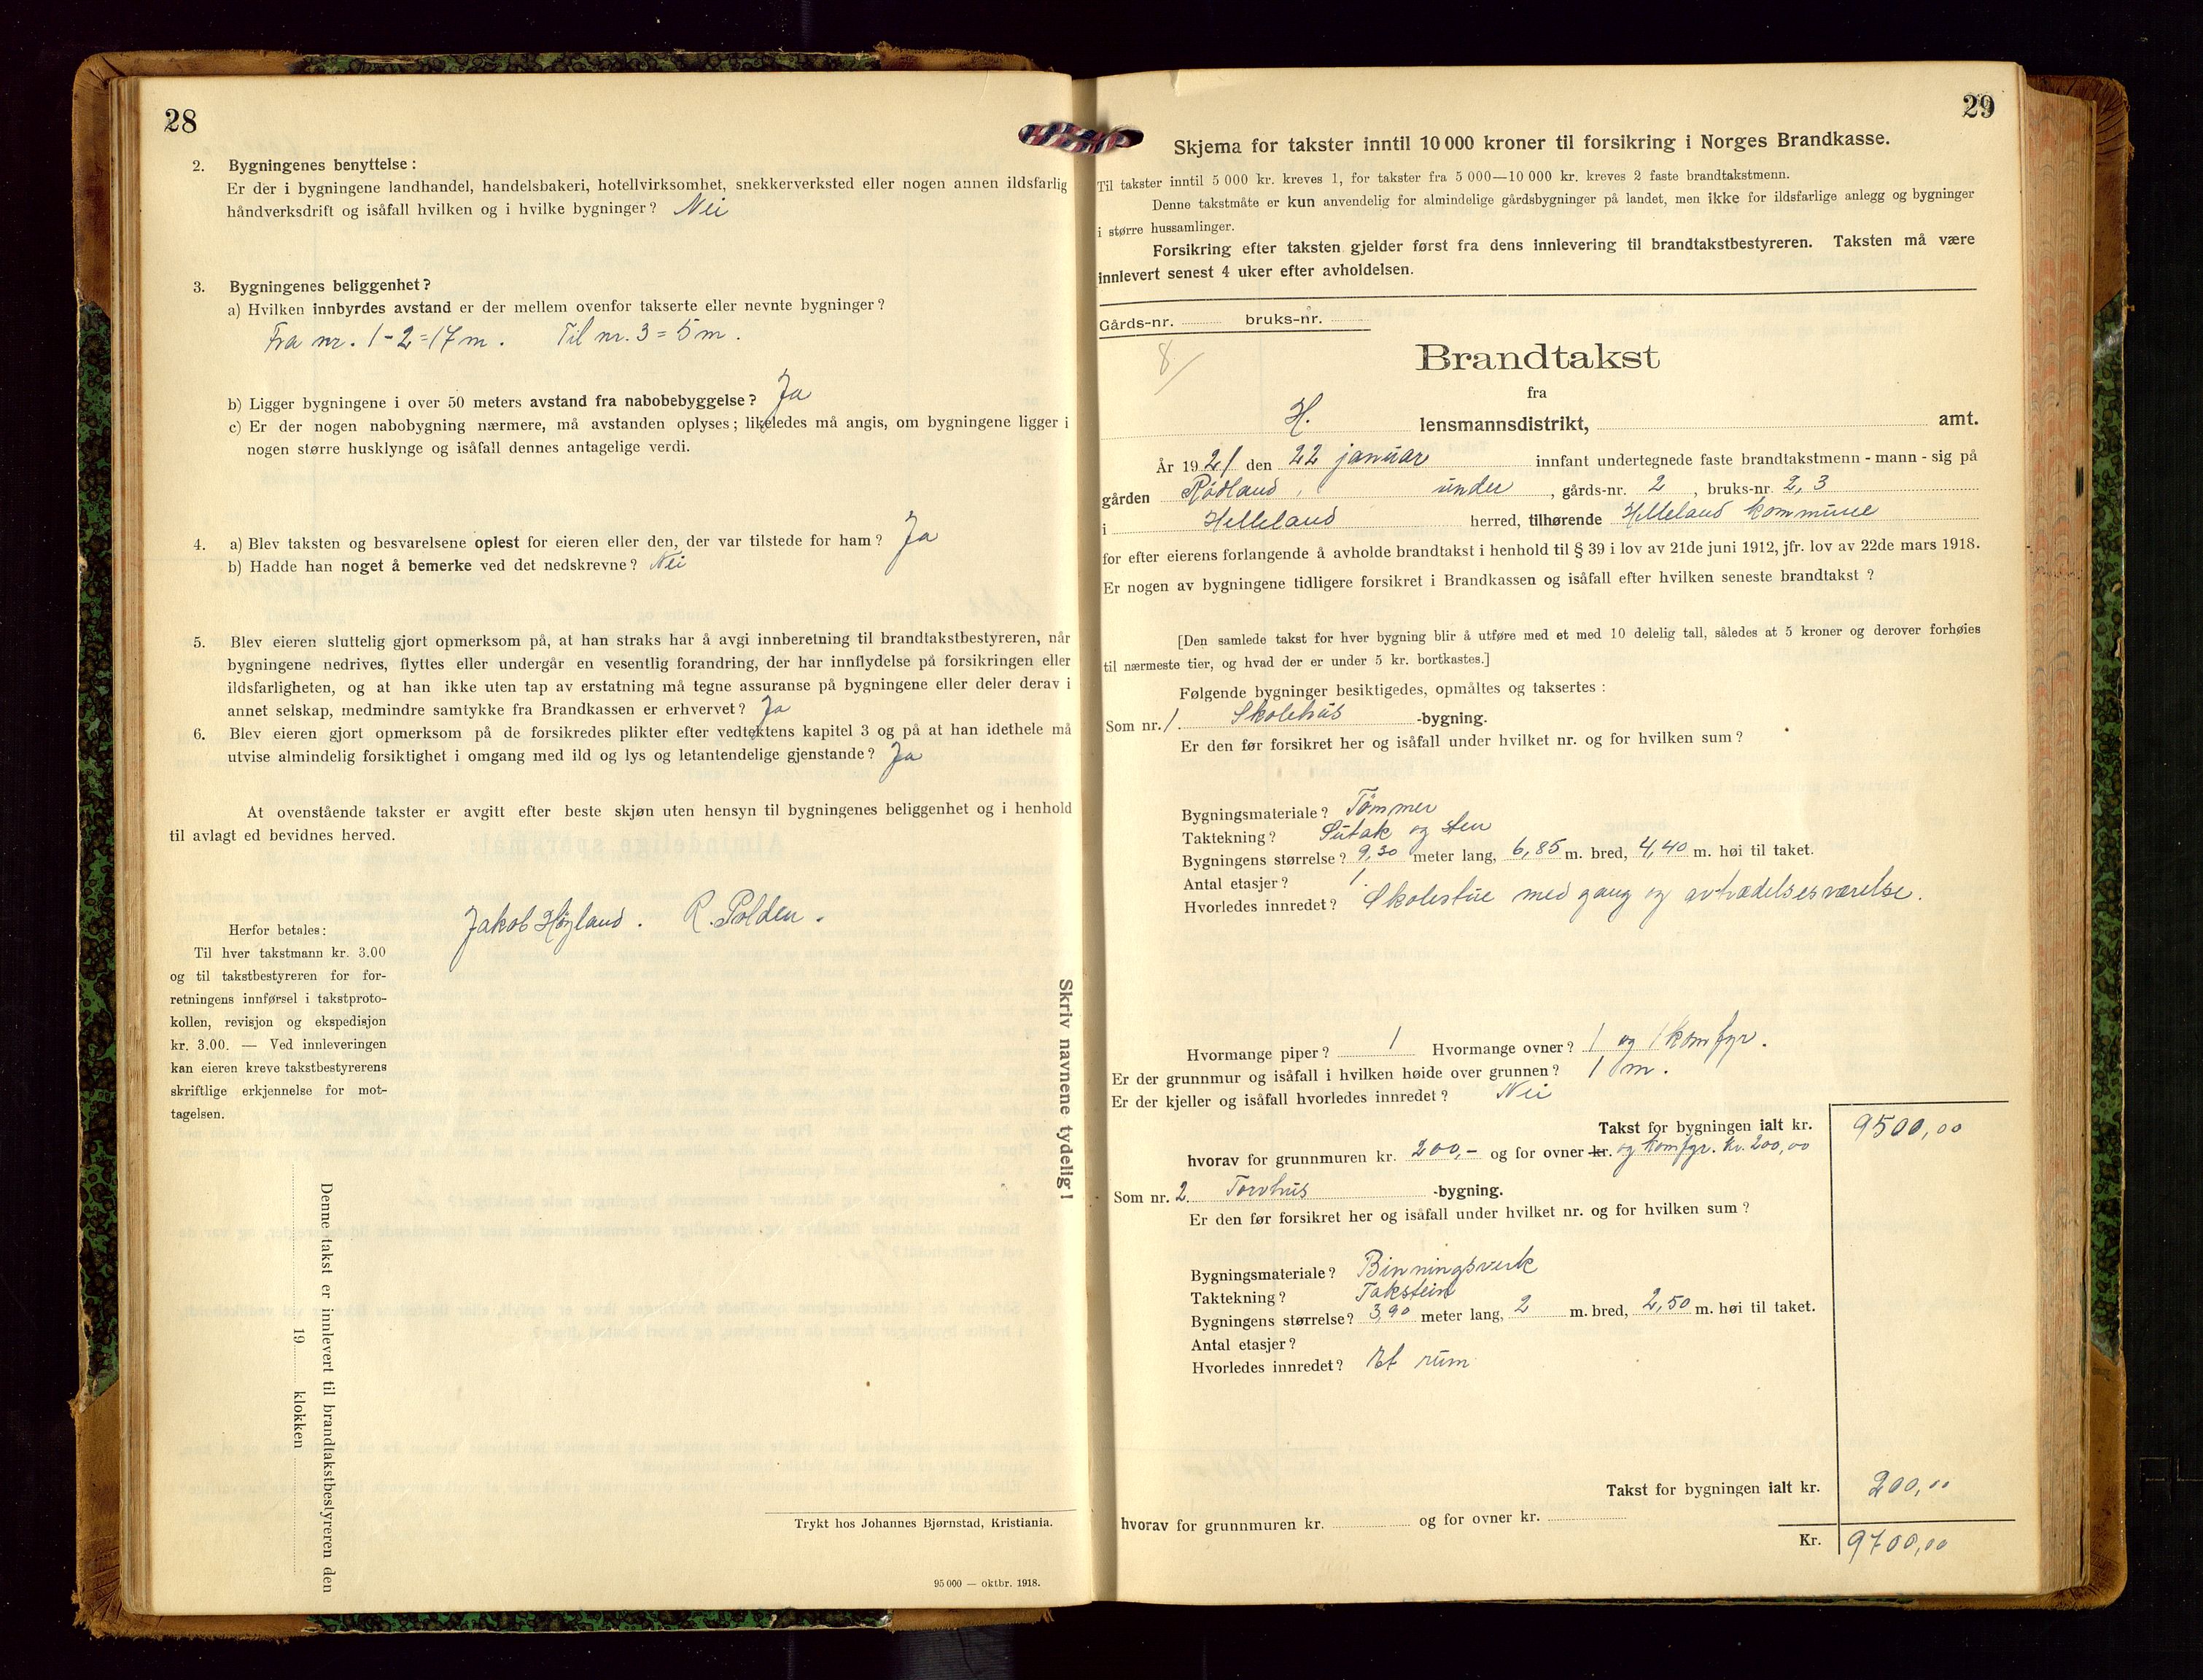 28
2. Bygningenes benyttelse:
Er der i bygningene landhandel, handelsbakeri, hotellvirksomhet, snekkerverksted eller nogen annen ildsfarlig
håndverksdrift og isåfall hvilken og i hvilke bygninger? Nei
3. Bygningenes beliggenhet?
a) Hvilken innbyrdes avstand er der mellem ovenfor takserte eller nevnte bygninger?
Fra nr. 1-2=17 m. Til nr. 3 = 5 m.
b) Ligger bygningene i over 50 meters avstand fra nabobebyggelse? Ja
c) Er der nogen nabobygning nærmere, må avstanden oplyses; likeledes må angis, om bygningene ligger i
nogen større husklynge og isåfall dennes antagelige verdi.
4. a) Blev taksten og besvarelsene oplest for eieren eller den, der var tilstede for ham? Ja
b) Hadde han noget å bemerke ved det nedskrevne? Nei
5. Blev eieren sluttelig gjort opmerksom på, at han straks har å avgi innberetning til brandtakstbestyreren, når
bygningene nedrives, flyttes eller undergår en vesentlig forandring, der har innflydelse på forsikringen eller
ildsfarligheten, og at han ikke uten tap av erstatning må tegne assuranse på bygningene eller deler derav i
annet selskap, medmindre samtykke fra Brandkassen er erhvervet? Ja
6. Blev eieren gjort opmerksom på de forsikredes plikter efter vedtektens kapitel 3 og på at han idethele må
utvise almindelig forsiktighet i omgang med ild og lys og letantendelige gjenstande? Ja
At ovenstående takster er avgitt efter beste skjøn uten hensyn til bygningenes beliggenhet og i henhold
til avlagt ed bevidnes herved.
Jakob Høgland. R. Polden.
Herfor betales:
Til hver takstmann kr. 3.00
og til takstbestyreren for for-
retningens innførsel i takstproto-
kollen, revisjon og ekspedisjon
kr. 3.00. — Ved innleveringen
kan eieren kreve takstbestyrerens
skriftlige erkjennelse for mot-
tagelsen.
Skriv navnene tydelig!
Denne takst er innlevert til brandtakstbestyreren den
19 klokken
Trykt hos Johannes Bjørnstad, Kristiania.
95 000 — oktbr. 1918.
29
Skjema for takster inntil 10 000 kroner til forsikring i Norges Brandkasse.
Til takster inntil 5 000 kr. kreves 1, for takster fra 5 000—10 000 kr. kreves 2 faste brandtakstmenn.
Denne takstmåte er kun anvendelig for almindelige gårdsbygninger på landet, men ikke for ildsfarlige anlegg og bygninger
i større hussamlinger.
Forsikring efter taksten gjelder først fra dens innlevering til brandtakstbestyreren. Taksten må være
innlevert senest 4 uker efter avholdelsen.
Gårds-nr. bruks-nr.
8/
Brandtakst
fra
H. lensmannsdistrikt, amt.
År 1921 den 22 januar innfant undertegnede faste brandtakstmenn - mann - sig på
gården Rødland, under, gårds-nr. 2, bruks-nr. 2, 3
i Helleland herred, tilhørende Helleland kommune
for efter eierens forlangende å avholde brandtakst i henhold til § 39 i lov av 21de juni 1912, jfr. lov av 22de mars 1918.
Er nogen av bygningene tidligere forsikret i Brandkassen og isåfall efter hvilken seneste brandtakst?
[Den samlede takst for hver bygning blir å utføre med et med 10 delelig tall, således at 5 kroner og derover forhøies
til nærmeste tier, og hvad der er under 5 kr. bortkastes.]
Følgende bygninger besiktigedes, opmåltes og taksertes:
Som nr. 1. Skolehus -bygning.
Er den før forsikret her og isåfall under hvilket nr. og for hvilken sum?
Bygningsmateriale? Tømmer
Taktekning? Sutak og sten
Bygningens størrelse? 9,30 meter lang, 6,85 m. bred, 4,40 m. høi til taket.
Antal etasjer? 1.
Hvorledes innredet? Skolestue med gang og avtrædelsesværelse.
Hvormange piper? 1 Hvormange ovner? 1 og 1 komfyr.
Er der grunnmur og isåfall i hvilken høide over grunnen? 1 m.
Er der kjeller og isåfall hvorledes innredet? Nei
Takst for bygningen ialt kr. 9500,00
hvorav for grunnmuren kr. 200,- og for ovner kr. og komfyr. Kr. 200,00
Som nr. 2. Torvhus -bygning.
Er den før forsikret her og isåfall under hvilket nr. og for hvilken sum?
Bygningsmateriale? Binningsverk
Taktekning? Takstein
Bygningens størrelse? 3,90 meter lang, 2 m. bred, 2,50 m. høi til taket.
Antal etasjer?
Hvorledes innredet? Et rum
Takst for bygningen ialt kr. 200,00
hvorav for grunnmuren kr. og for ovner kr.
Kr. 9700,00